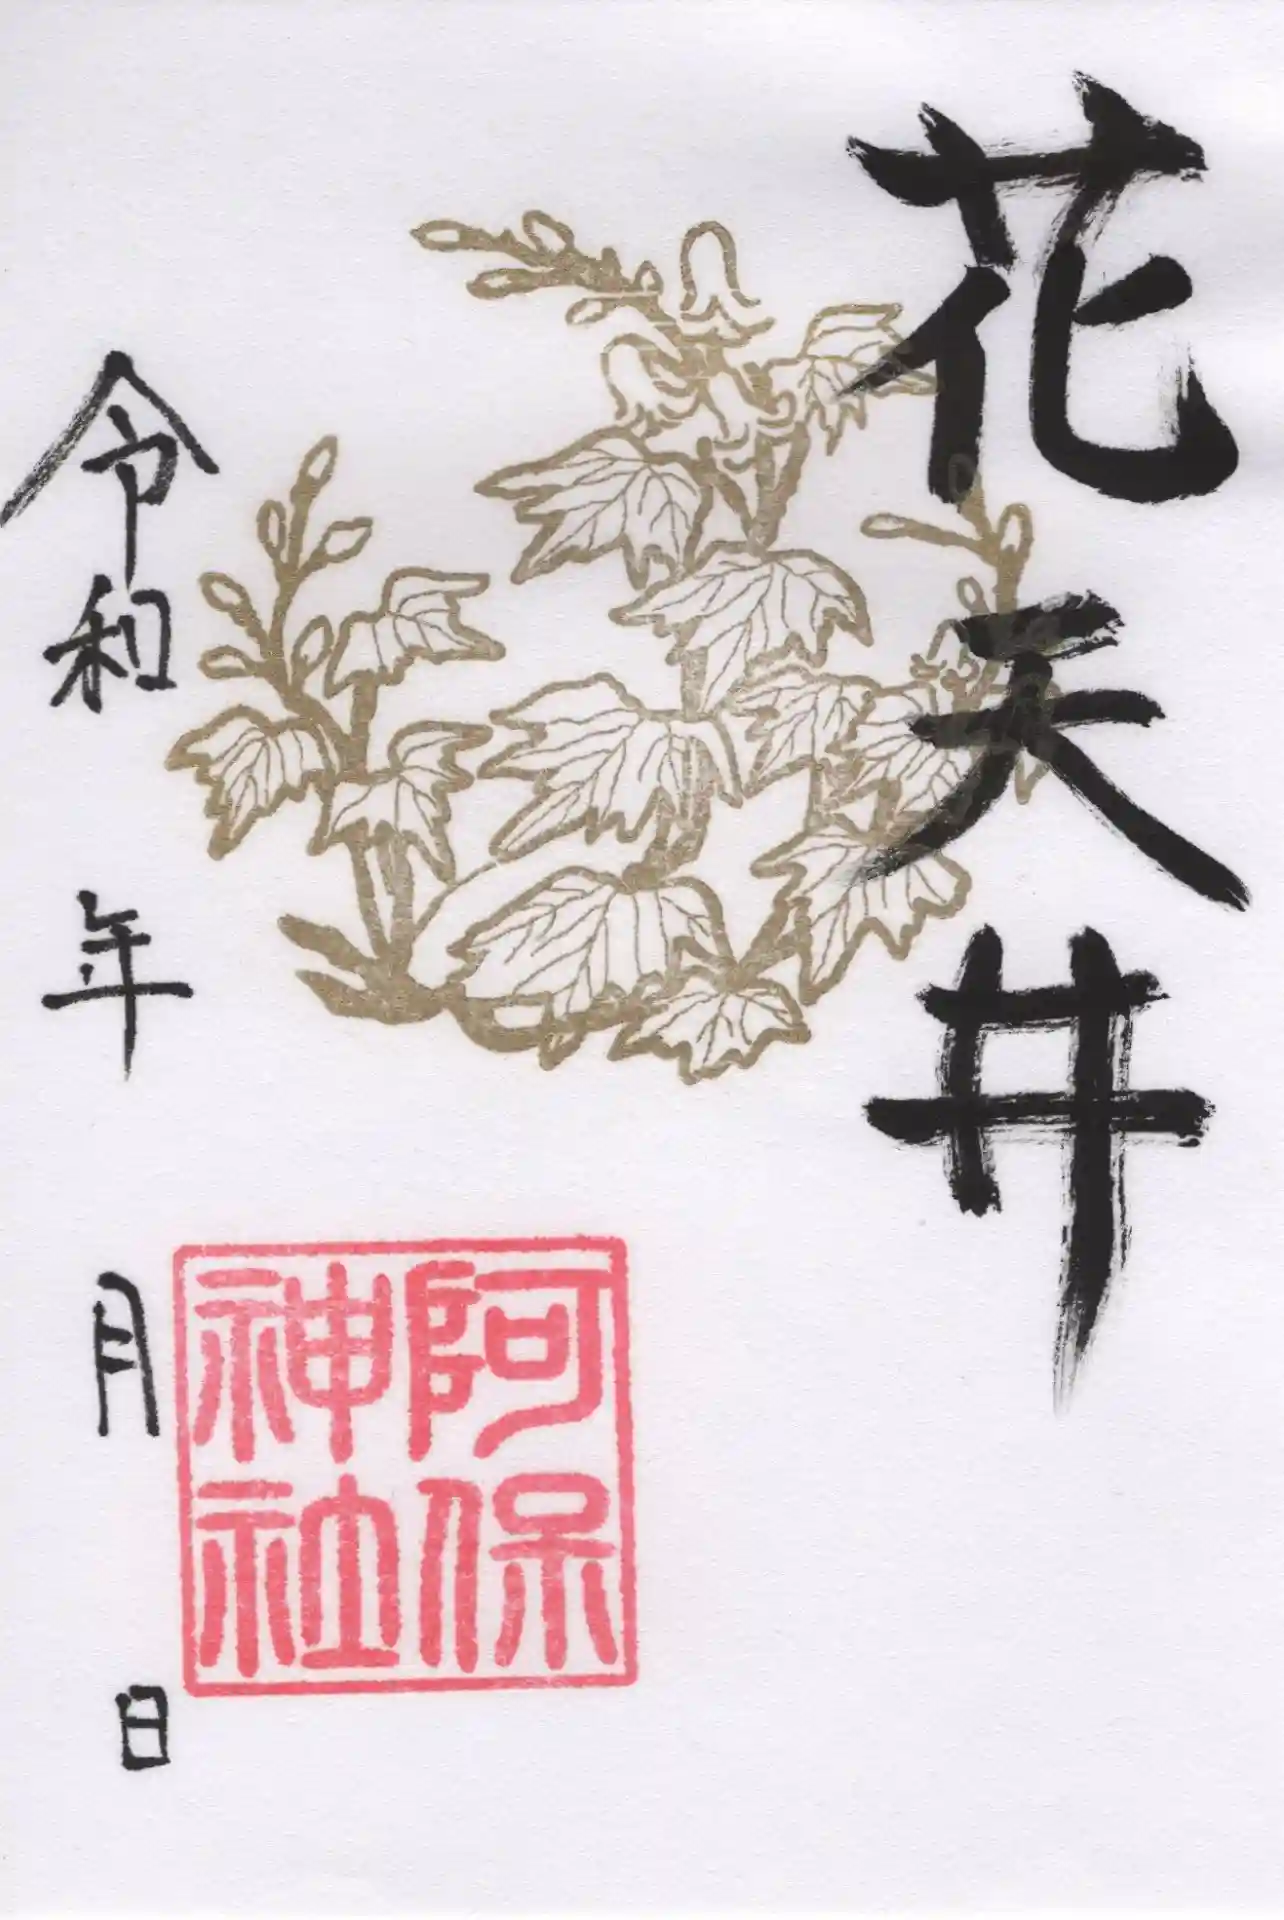 花天井
阿保
神社
令和　年　月　日